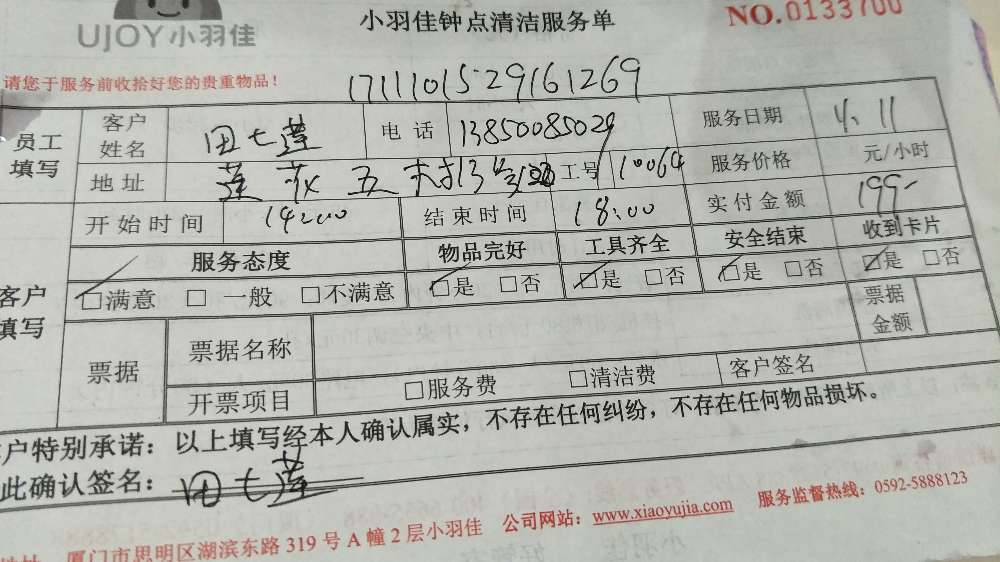 UJOY小羽佳
小羽佳钟点清洁服务单
NO.0133700
请您于服务前收拾好您的贵重物品！
1711101529161269
员工填写
客户姓名 田七莲 电话 13850085029 服务日期 4.11
地址 莲 五村13 工号 10064 服务价格 元/小时
开始时间 14:00 结束时间 18:00 实付金额 199-
客户填写
服务态度 物品完好 工具齐全 安全结束 收到卡片
□满意 □一般 □不满意 □是 □否 □是 □否 □是 □否 □是 □否
票据 票据名称 票据金额
开票项目 □服务费 □清洁费 客户签名
户特别承诺：以上填写经本人确认属实，不存在任何纠纷，不存在任何物品损坏。
此确认签名：田七莲
厦门市思明区湖滨东路319号A幢2层小羽佳 公司网站：www.xiaoyujia.com 服务监督热线：0592-5888123